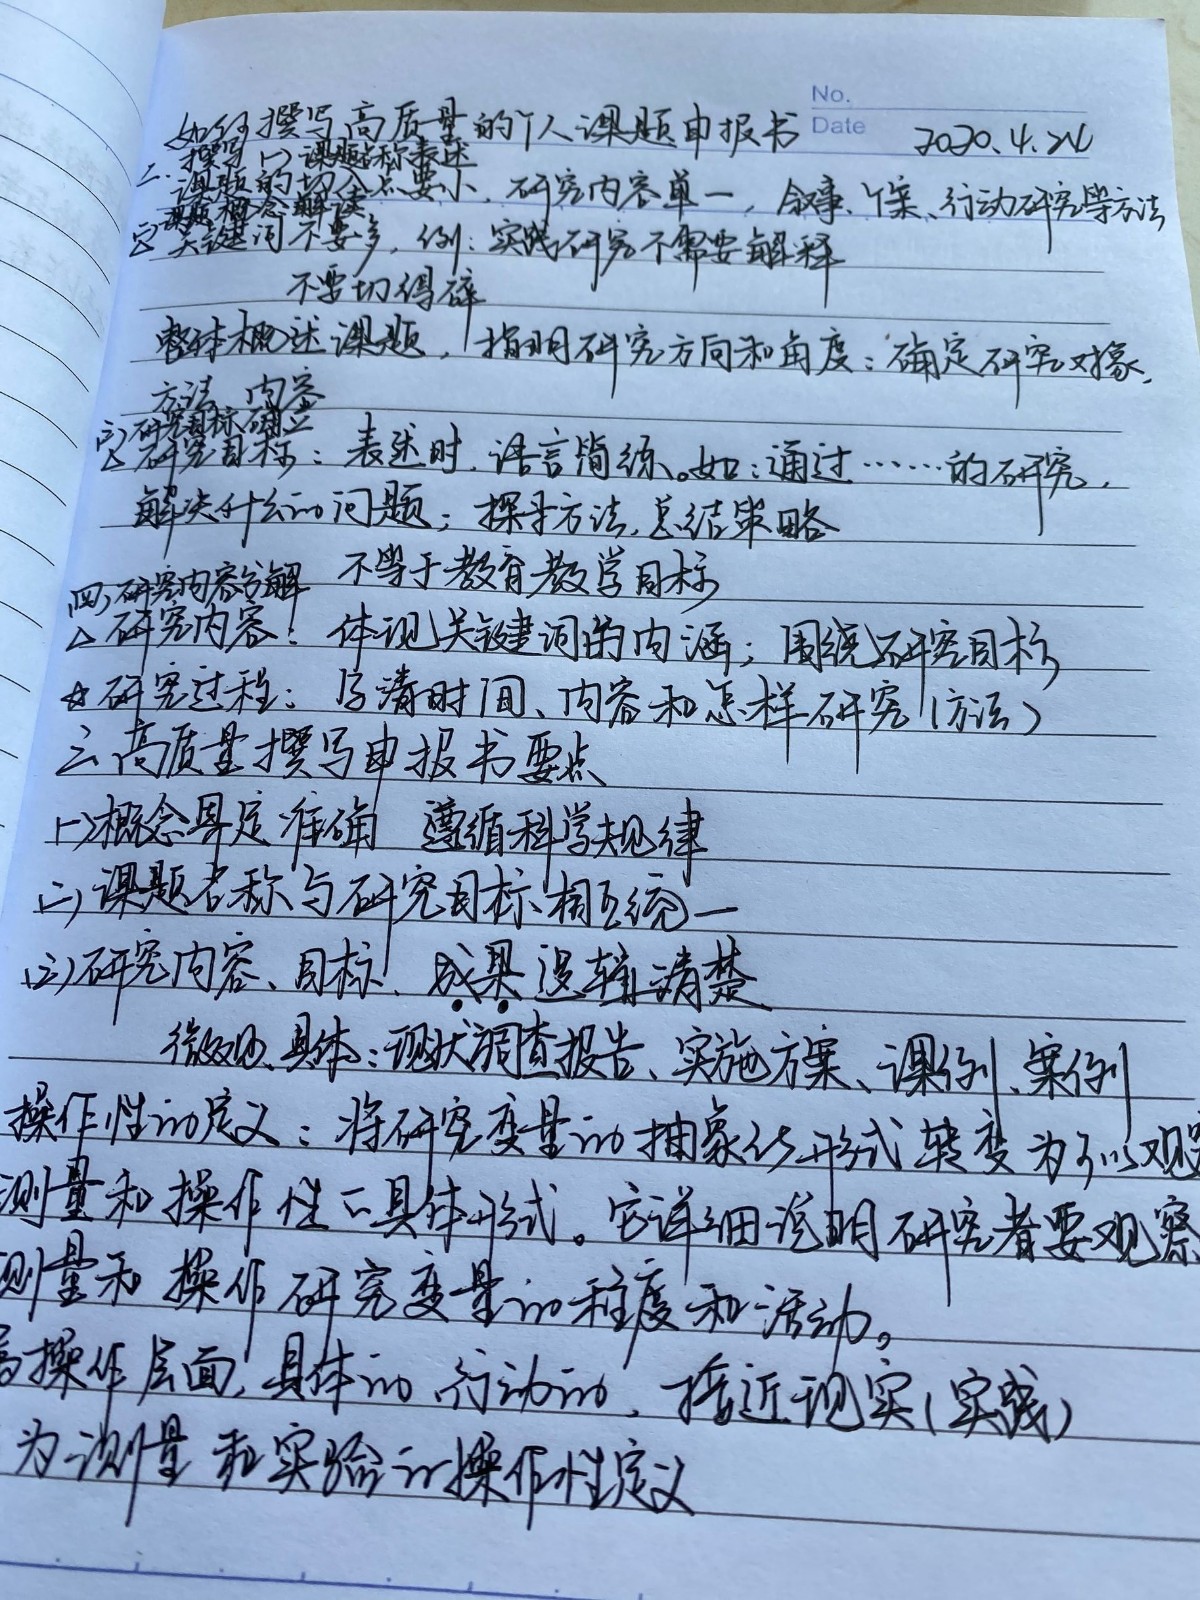 No.
Date 2020.4.24
如何撰写高质量的个人课题申报书
二.撰写(一)课题名称表述
课题的切入点要小,研究内容单一,叙事、个案、行动研究等方法
(二)课题概念解读
△关键词不要多,例:实践研究不需要解释
不要切得碎
整体概述课题,指明研究方向和角度;确定研究对象,
方法、内容
(三)研究目标确立
△研究目标:表述时,语言简练。如:通过……的研究,
解决什么的问题;探寻方法,总结策略
不等于教育教学目标
(四)研究内容分解
△研究内容:体现关键词的内涵;围绕研究目标
☆研究过程:写清时间、内容和怎样研究(方法)
三.高质量撰写申报书要点
(一)概念界定准确 遵循科学规律
(二)课题名称与研究目标相互统一
(三)研究内容、目标、成果逻辑清楚
微观、具体:现状调查报告、实施方案、课例、案例
操作性的定义:将研究变量的抽象化形式转变为可以观察
测量和操作性的具体形式。它详细说明研究者要观察
测量和操作研究变量的程度和活动。
操作层面,具体的,行动的,接近现实(实践)
为测量和实验的操作性定义